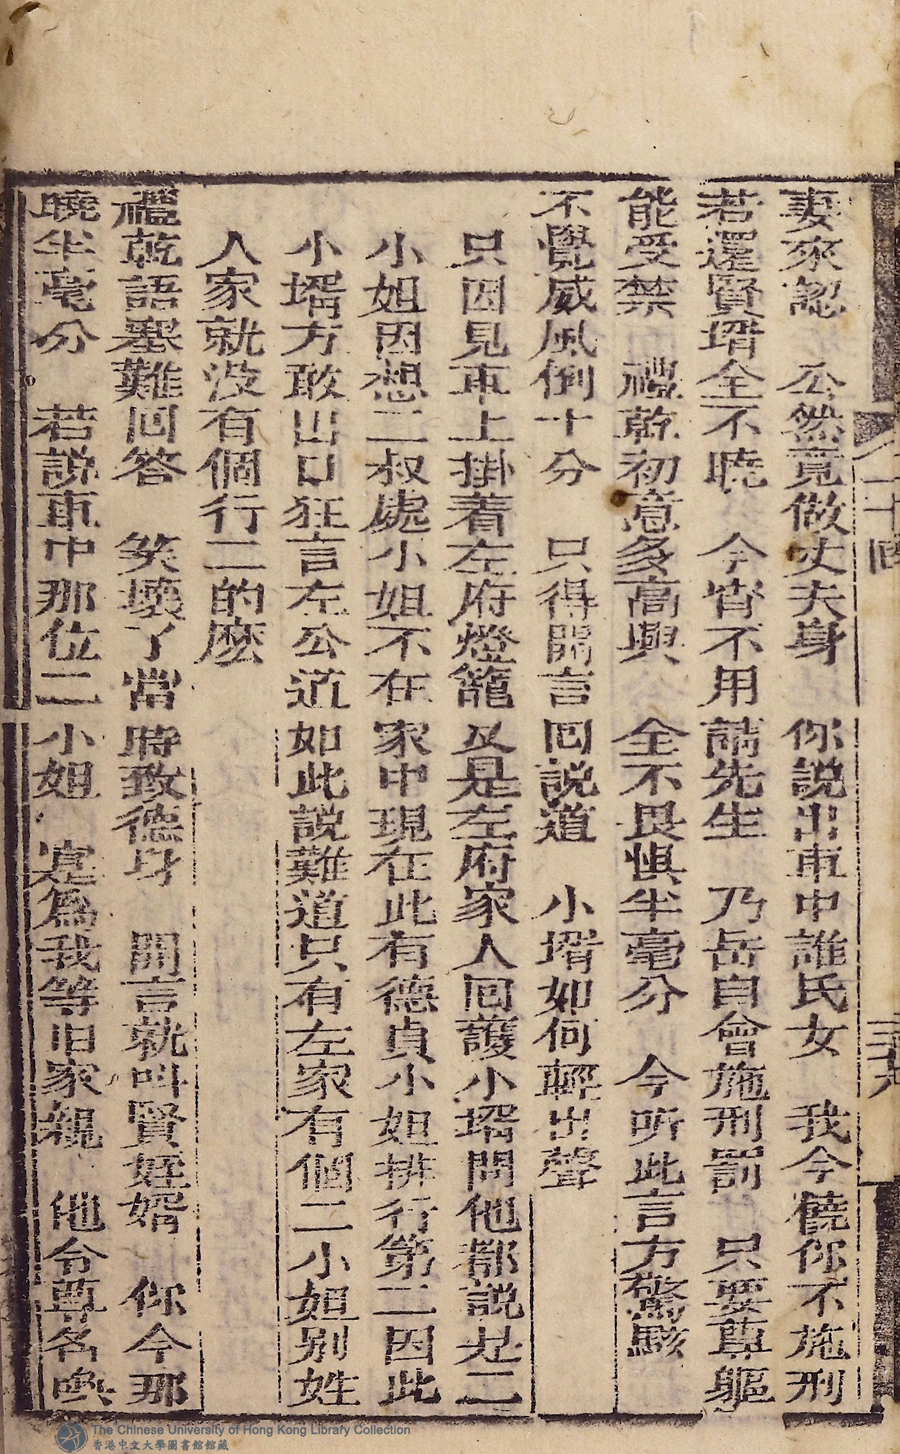 妻來認　公然竟做丈夫身　你説出車中誰氏女　我今饒你不施刑
若還賢壻全不曉　今宵不用請先生　乃岳自會施刑罰　只要尊軀
能受禁　禮乾初意多高興　全不畏惧半毫分　今听此言方驚駭
不覺威風倒十分　只得開言回説道　小壻如何輕出聲
只因見車上掛着左府燈籠及是左府家人回護小壻問他都説是二
小姐因想二叔處小姐不在家中現在此有德貞小姐排行第二因此
小壻方敢出口狂言左公道如此説難道只有左家有個二小姐别姓
人家就没有個行二的麽
禮乾語塞難回答　笑壞了當時致德身　開言就叫賢姪婿　你今那
曉半毫分　若説車中那位二小姐　寔為我等旧家親　他令尊名喚
二十四
The Chinese University of Hong Kong Library Collection
香港中文大學圖書館館藏